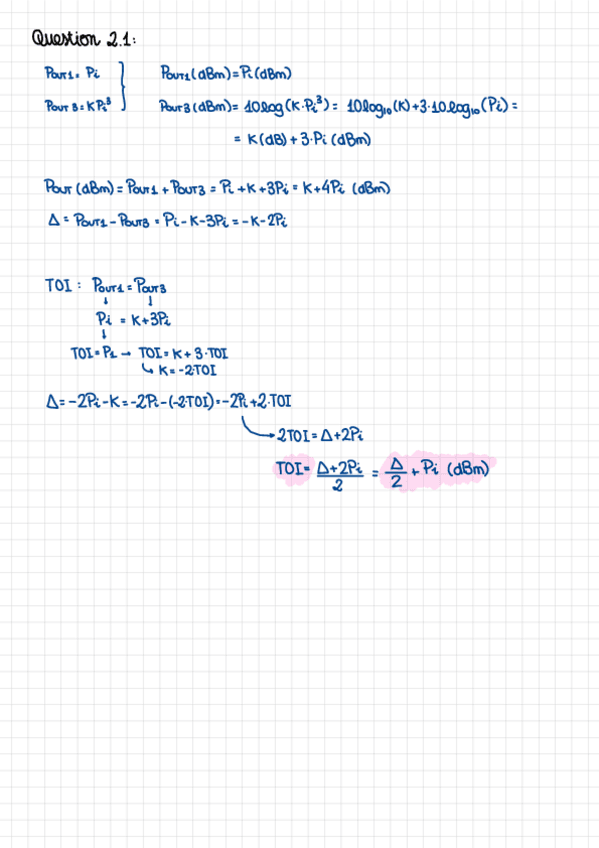 Question 2.1:
Pout1 = Pi
Pout1 (dBm) = Pi (dBm)
Pout3 = K Pi³
Pout3 (dBm) = 10log(K·Pi³) = 10log₁₀(K) + 3·10log₁₀(Pi) =
= K(dB) + 3·Pi (dBm)
Pout (dBm) = Pout1 + Pout3 = Pi + K + 3Pi = K + 4Pi (dBm)
Δ = Pout1 - Pout3 = Pi - K - 3Pi = -K - 2Pi
TOI : Pout1 = Pout3
↓ ↓
Pi = K + 3Pi
↓
TOI = Pi → TOI = K + 3·TOI
↳ K = -2·TOI
Δ = -2Pi - K = -2Pi - (-2TOI) = -2Pi + 2·TOI
→ 2TOI = Δ + 2Pi
TOI = (Δ + 2Pi)/2 = Δ/2 + Pi (dBm)